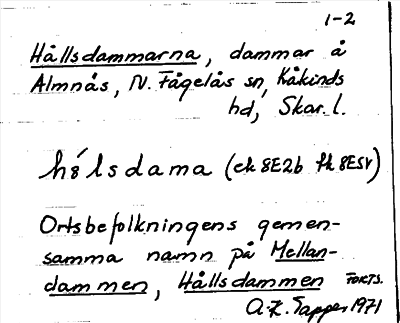 1-2
Hållsdammarna, dammar å
Almnäs, N. Fågelås sn, Kåkinds
hd, Skar. l.
hɵ́lsdama (ek 8E2b fk 8E5v)
Ortsbefolkningens gemen-
samma namn på Mellan-
dammen, Hållsdammen FORTS.
1971